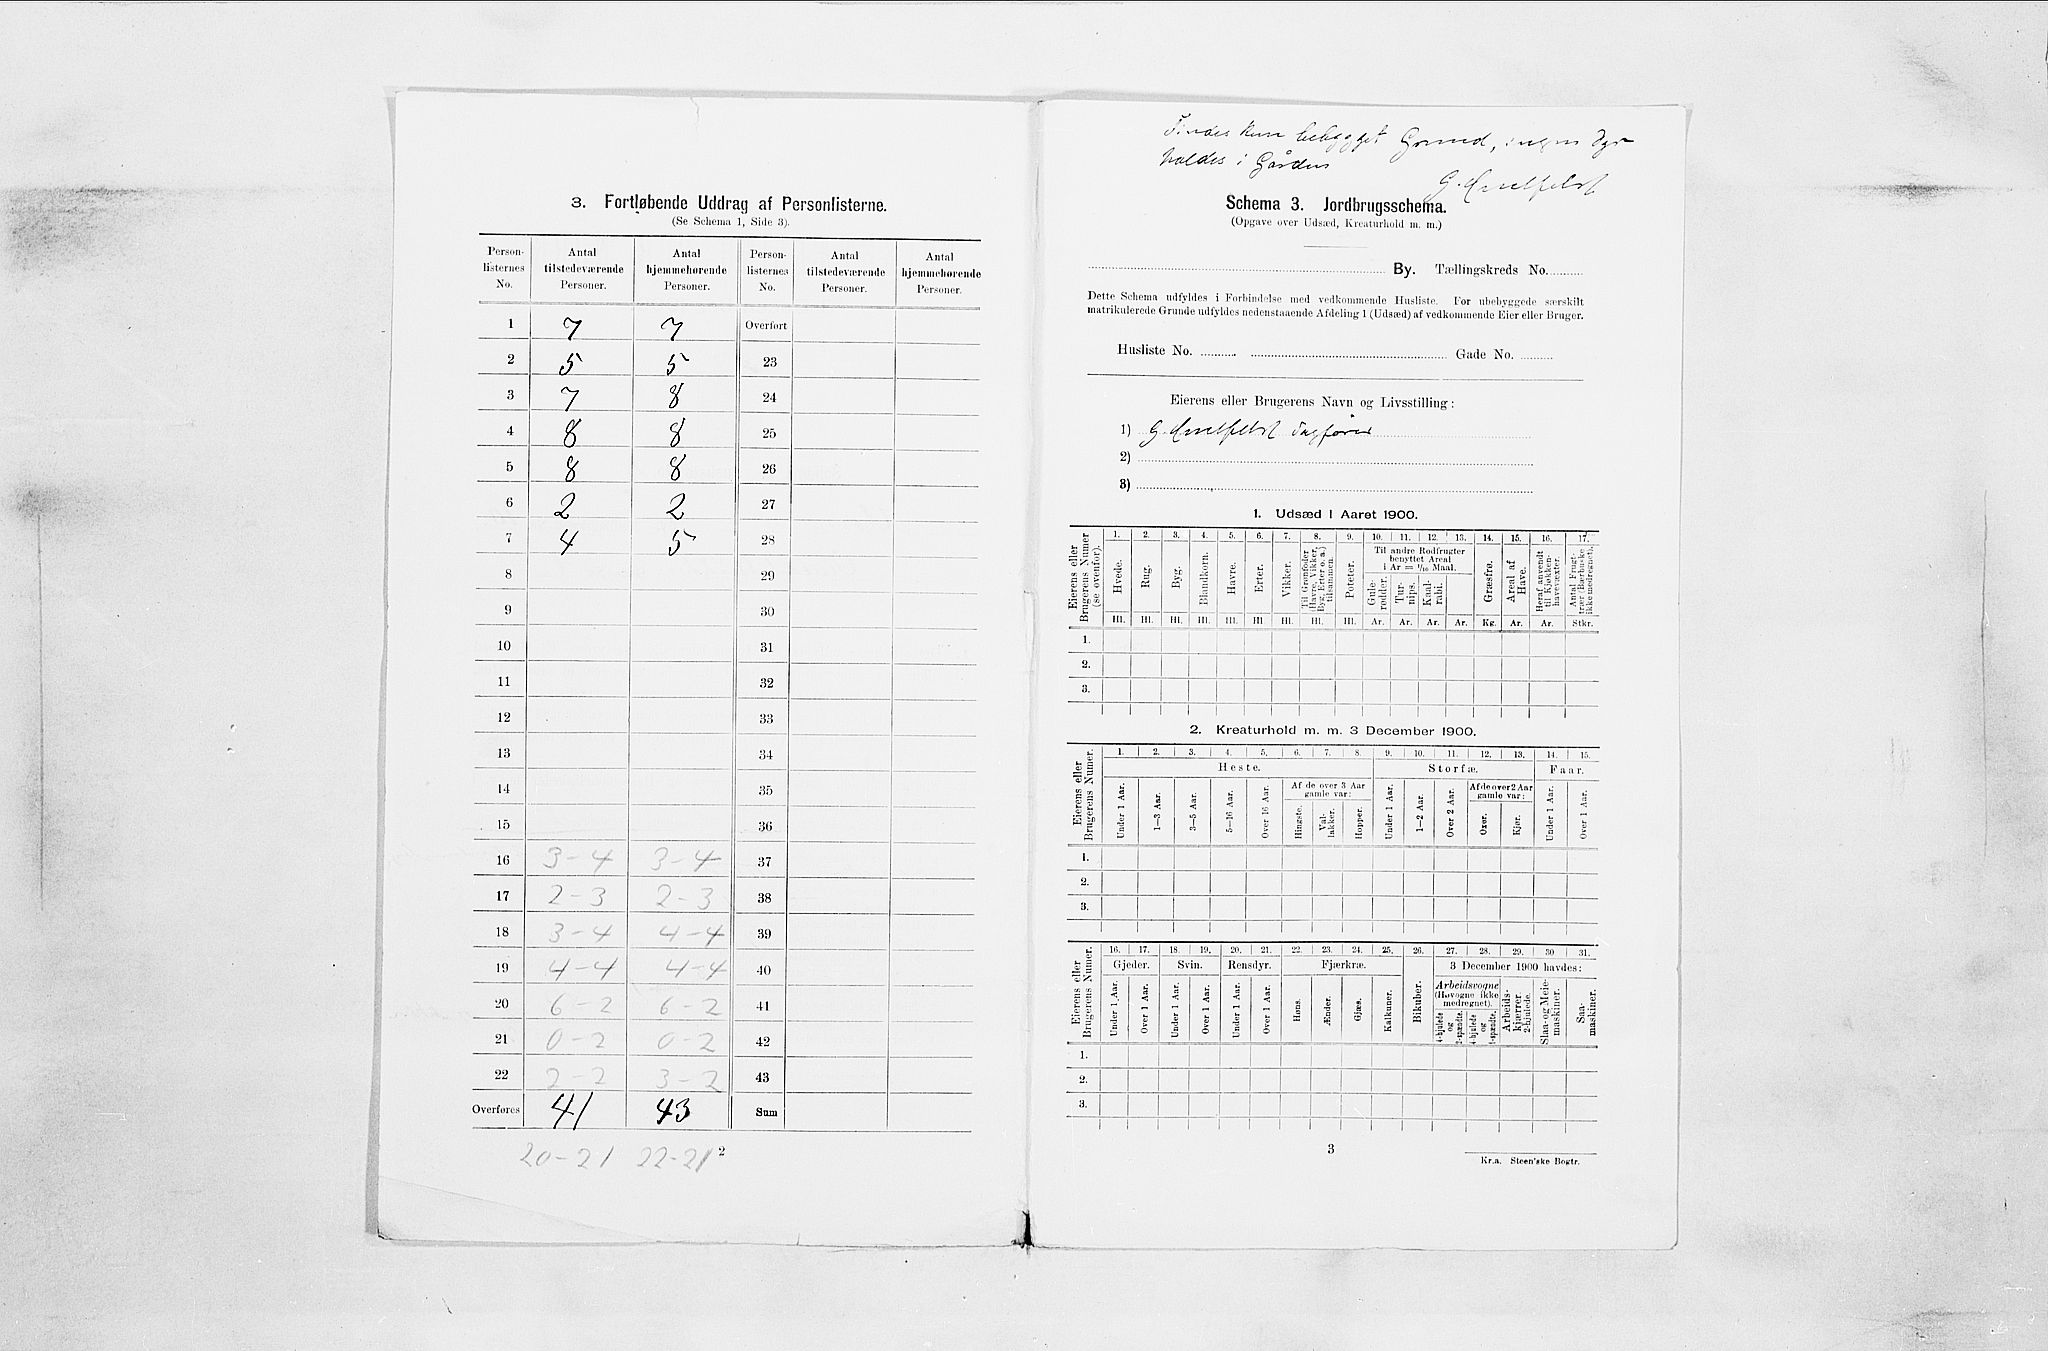 3. Fortløbende Uddrag af Personlisterne.
(Se Schema 1, Side 3).
Person-listernes No. | Antal tilstedeværende Personer. | Antal hjemmehørende Personer. | Person-listernes No. | Antal tilstedeværende Personer. | Antal hjemmehørende Personer.
1 7 7 Overført
2 5 5 23
3 7 8 24
4 8 8 25
5 8 8 26
6 2 2 27
7 4 5 28
8 29
9 30
10 31
11 32
12 33
13 34
14 35
15 36
16 3-4 3-4 37
17 2-3 2-3 38
18 3-4 4-4 39
19 4-4 4-4 40
20 6-2 6-2 41
21 0-2 0-2 42
22 2-2 3-2 43
Overføres 41 43 Sum
20-21 22-21 2
Findes kun bebygget Grund, ingen Dyr
holdes i Gården
Schema 3. Jordbrugsschema.
(Opgave over Udsæd, Kreaturhold m. m.)
By. Tællingskreds No.
Dette Schema udfyldes i Forbindelse med vedkommende Husliste. For ubebyggede særskilt
matrikulerede Grunde udfyldes nedenstaaende Afdeling 1 (Udsæd) af vedkommende Eier eller Bruger.
Husliste No. Gade No.
Eierens eller Brugerens Navn og Livsstilling:
1) G.
2)
3)
1. Udsæd i Aaret 1900.
Eierens eller Brugerens Numer (se ovenfor).
1. 2. 3. 4. 5. 6. 7. 8. 9. 10. 11. 12. 13. 14. 15. 16. 17.
Hvede. Rug. Byg. Blandkorn. Havre. Erter. Vikker. Til Grønfoder (Havre, Vikker, Byg, Erter o. a.) tilsammen. Poteter.
Til andre Rodfrugter benyttet Areal i Ar = 1/10 Maal.
Gule-rødder. Tur-nips. Kaal-rabi.
Græsfrø. Areal af Have. Heraf anvendt til Kjøkken-havevæxter. Antal Frugt-trær (Bærbuske ikke medregnet).
Hl. Hl. Hl. Hl. Hl. Hl Hl. Hl. Hl. Ar. Ar. Ar. Ar. Kg. Ar. Ar. Stkr.
1.
2.
3.
2. Kreaturhold m. m. 3 December 1900.
Eierens eller Brugerens Numer.
1. 2. 3. 4. 5. 6. 7. 8. 9. 10. 11. 12. 13. 14. 15.
Heste. Storfæ. Faar.
Under 1 Aar. 1—3 Aar. 3—5 Aar. 5—16 Aar. Over 16 Aar.
Af de over 3 Aar gamle var:
Hingste. Val-lakker. Hopper.
Under 1 Aar. 1—2 Aar. Over 2 Aar.
Af de over 2 Aar gamle var:
Oxer. Kjør.
Under 1 Aar. Over 1 Aar.
1.
2.
3.
Eierens eller Brugerens Numer.
16. 17. 18. 19. 20. 21. 22 23. 24. 25. 26. 27. 28. 29. 30 31.
Gjeder. Svin. Rensdyr. Fjærkræ. Bikuber. 3 December 1900 havdes:
Under 1 Aar. Over 1 Aar. Under 1 Aar. Over 1 Aar. Under 1 Aar. Over 1 Aar. Høns. Ænder. Gjæs. Kalkuner.
Arbeidsvogne (Høvogne ikke medregnet).
4-hjulede og 2-spændte. 4-hjulede og 1-spændte.
Arbeids-kjærrer 2-hjulede. Slaa- og Meie-maskiner. Saa-maskiner.
1.
2.
3.
3
Kr.a. Steen'ske Bogtr.